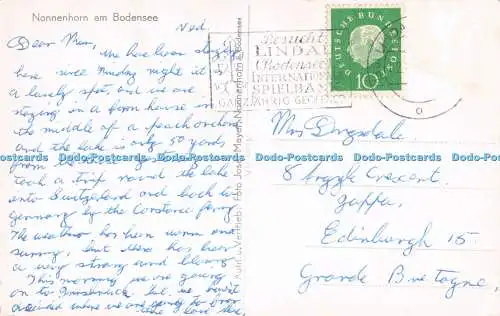 Nonnenhorn am Bodensee
Wed.
Dear Mum,
We have been staying
here since Monday night it is
a lovely spot, and we are
staying in a farm house in
the middle of a peach orchard
and the lake is only 50 yards
from
took a trip round the lake
into Switzerland and back to
Germany by the Constance ferry.
The weather has been warm and
sunny, but there has been
a very strong wind blowing
This morning we are going
on to Innsbruck but we haven't
decided where we are going to
the
Foto Josef Mayer, Nonnenhorn a. Bodensee
Besucht
LINDAU
(Bodensee)
INTERNATION
SPIELBA
GANZJÄHRIG GEÖFFNET
DEUTSCHE BUNDESPOST
10
Mrs Dugsdale
8 Argyle Crescent,
Joppa,
Edinburgh 15.
Grande Bretagne,
Dodo-Postcards Dodo-Postcards Dodo-Postcards Dodo-Postcards